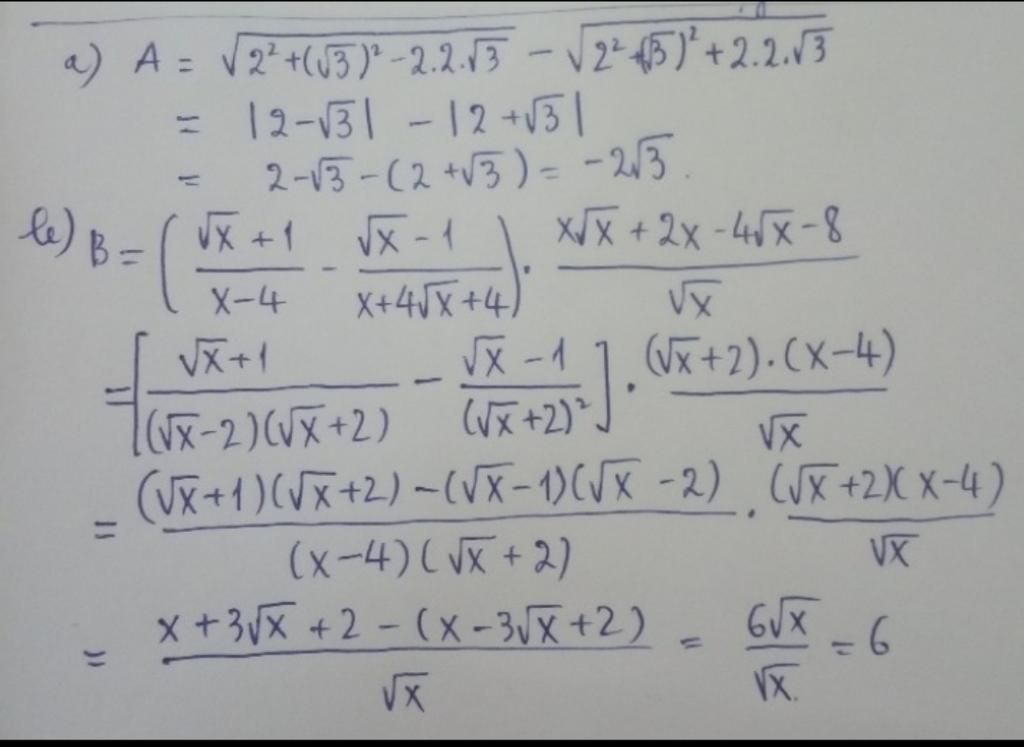 a) A = √(2² + (√3)² - 2.2.√3) - √(2² + (√3)² + 2.2.√3)
= |2 - √3| - |2 + √3|
= 2 - √3 - (2 + √3) = -2√3.
b) B = ((√x + 1)/(x - 4) - (√x - 1)/(x + 4√x + 4)) . (x√x + 2x - 4√x - 8)/√x
= [(√x + 1)/((√x - 2)(√x + 2)) - (√x - 1)/(√x + 2)²] . ((√x + 2).(x - 4))/√x
= ((√x + 1)(√x + 2) - (√x - 1)(√x - 2))/((x - 4)(√x + 2)) . ((√x + 2)(x - 4))/√x
= (x + 3√x + 2 - (x - 3√x + 2))/√x = 6√x/√x = 6